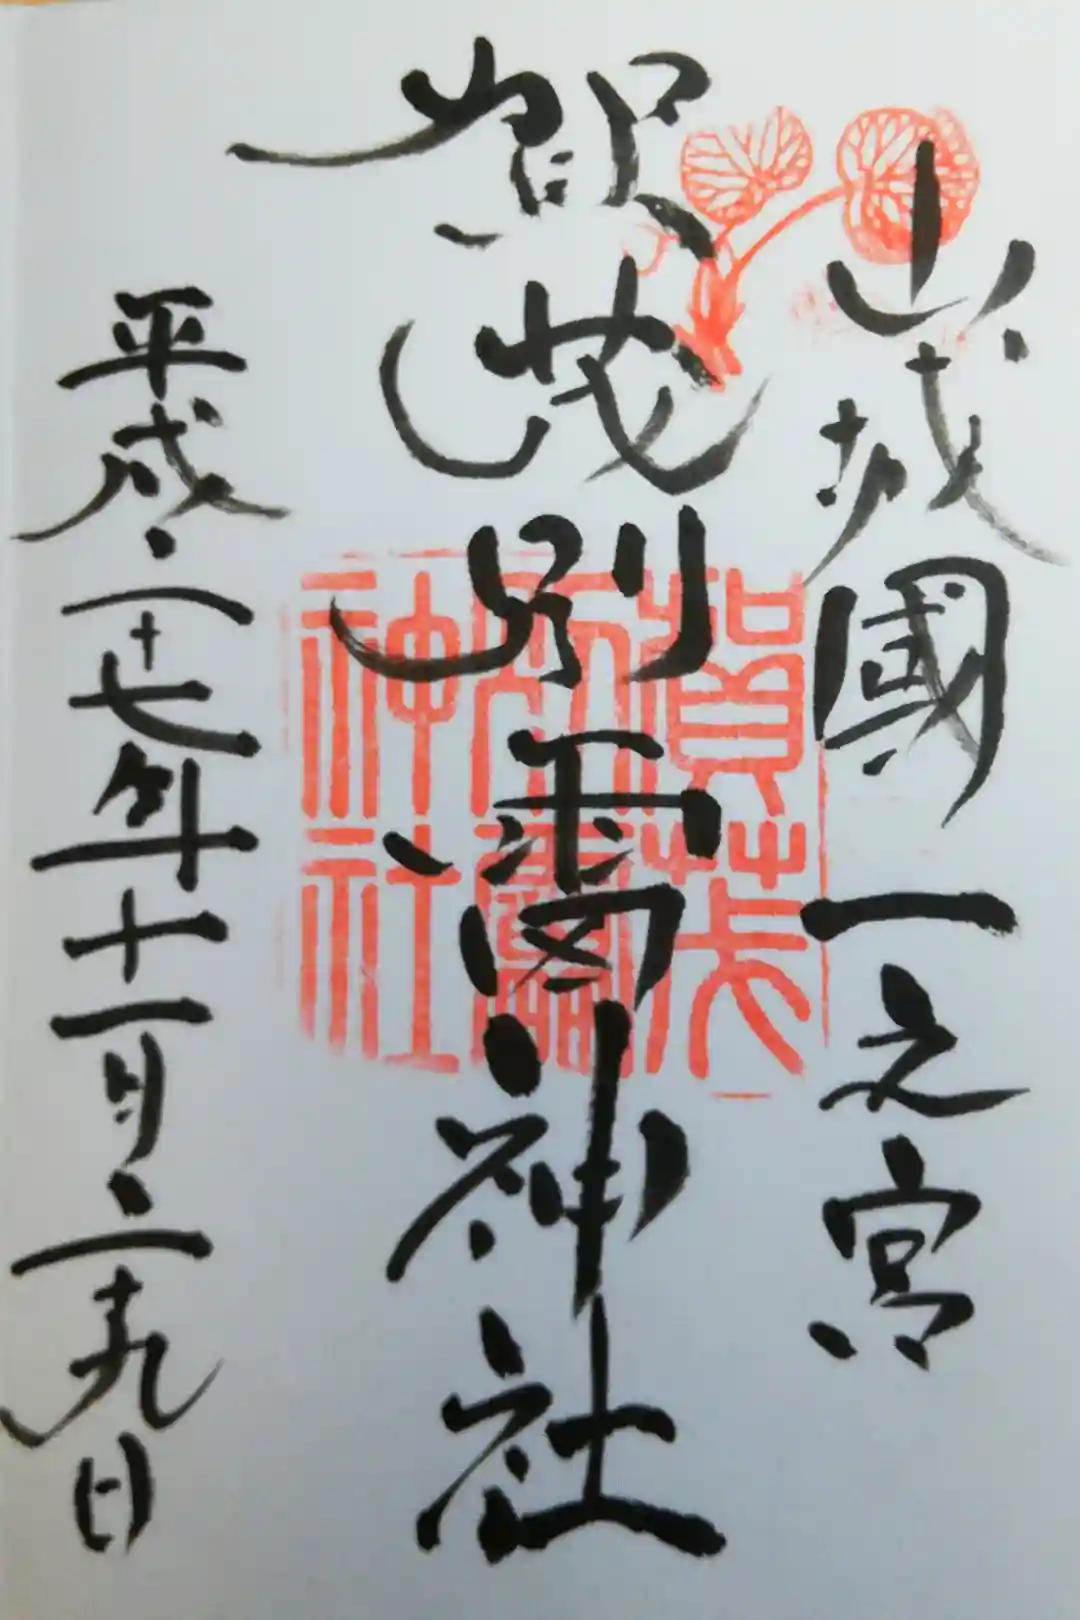 山城國一之宮
賀茂別雷神社
平成二十七年十一月二十九日
賀茂
別雷
神社